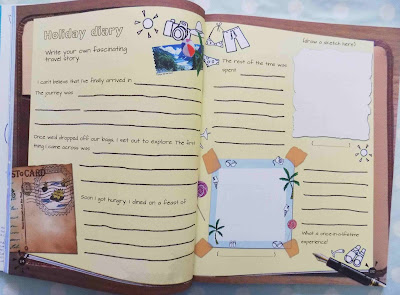 Holiday diary
Write your own fascinating
travel story.
I can't believe that I've finally arrived in
The journey was
Once we'd dropped off our bags, I set out to explore. The first
thing I came across was
Soon I got hungry. I dined on a feast of
The rest of the time was
spent
(draw a sketch here)
What a once-in-a-lifetime
experience!